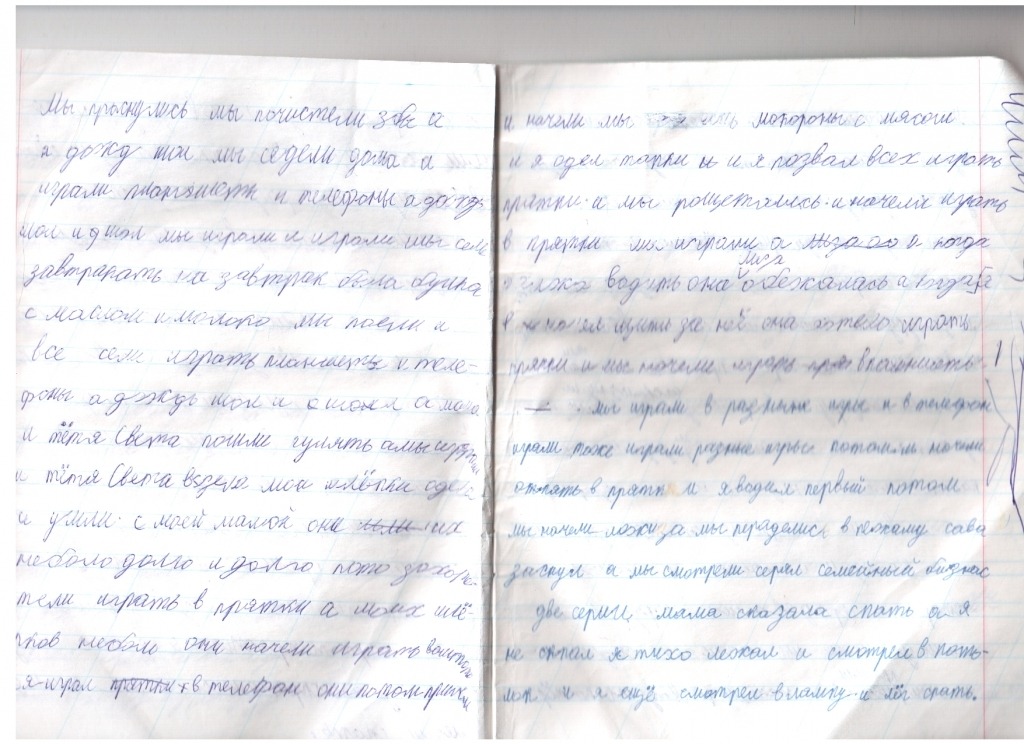 Мы проснулись мы почистели зубы
а дождь шол мы седели дома и
играли планжеты и телефоны а дождь
шол и шол мы играли и играли мы сели
завтракать на завтрак была булка
с маслом и молоко мы поели и
все сели играть планжеты и теле-
фоны а дождь шол и а мама
и тётя Света пошли гулять а мы играли
и тётя Света взела мои шлёпки одела
и ушли с моей мамой они их
неболо долго и долго пото захоте-
тели играть в прятки а моих шлё-
пков неболо они начели играть
я играл прятки в телефон они потом пришли
и начели мы есть макороны с мясом
и я одел тапки и и я позвал всех играть
прятки и мы рощетались и начели играть
в прятки мы играли а и когда
Лиза
водить она обежалась а когда
в начел за ней она хотела играть
прятки и мы начели играть в планжеты
мы играли в разные игры и в телефон
играли тоже играли разные игры потом мы начели
опять в прятки и я водил первый потом
мы начели ложица мы переделись в пежаму сава
заснул а мы смотрели серял семейный бизнас
две серии мама сказала спать а я
не спал я тихо лежал и смотрел в пото-
лок и я ещё смотрел в лампу и лёг спать.